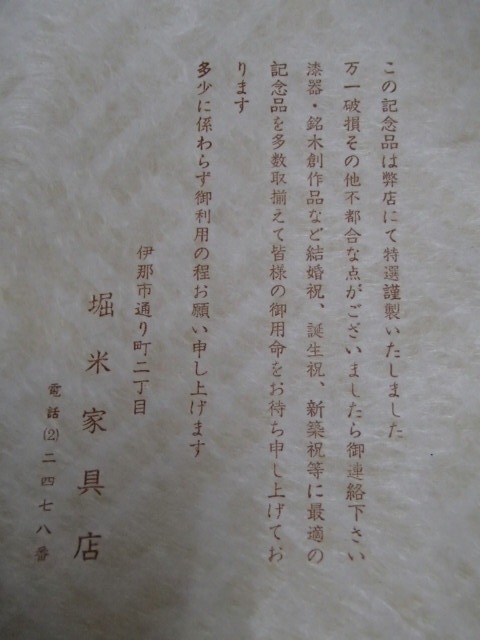 この記念品は弊店にて特選謹製いたしました
万一破損その他不都合な点がございましたら御連絡下さい
漆器・銘木創作品など結婚祝、誕生祝、新築祝等に最適の
記念品を多数取揃えて皆様の御用命をお待ち申し上げてお
ります
多少に係わらず御利用の程お願い申し上げます
伊那市通り町二丁目
堀米家具店
電話(2)二四七八番